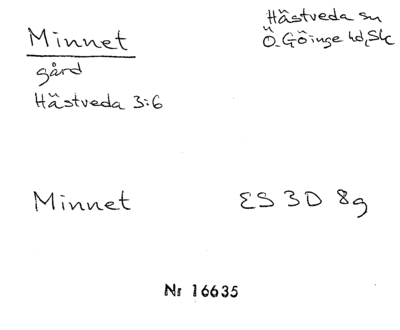 Minnet
gård
Hästveda 3:6
Hästveda sn
Ö. Göinge hd, Sk
Minnet
ES 3D 8g
Nr 16635